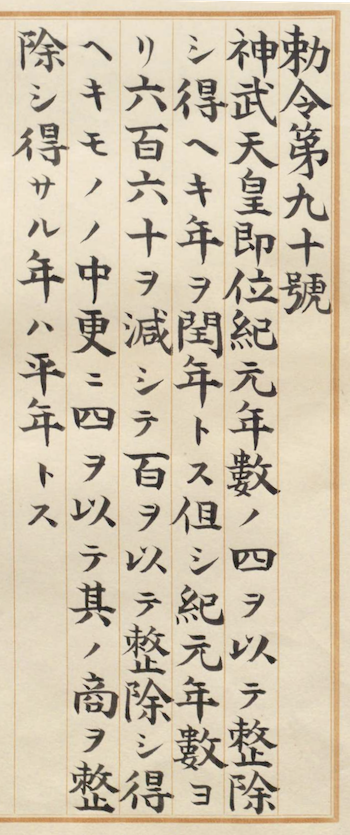 勅令第九十號
神武天皇即位紀元年數ノ四ヲ以テ整除
シ得ヘキ年ヲ閏年トス但シ紀元年數ヨ
リ六百六十ヲ減シテ百ヲ以テ整除シ得
ヘキモノノ中更ニ四ヲ以テ其ノ商ヲ整
除シ得サル年ハ平年トス